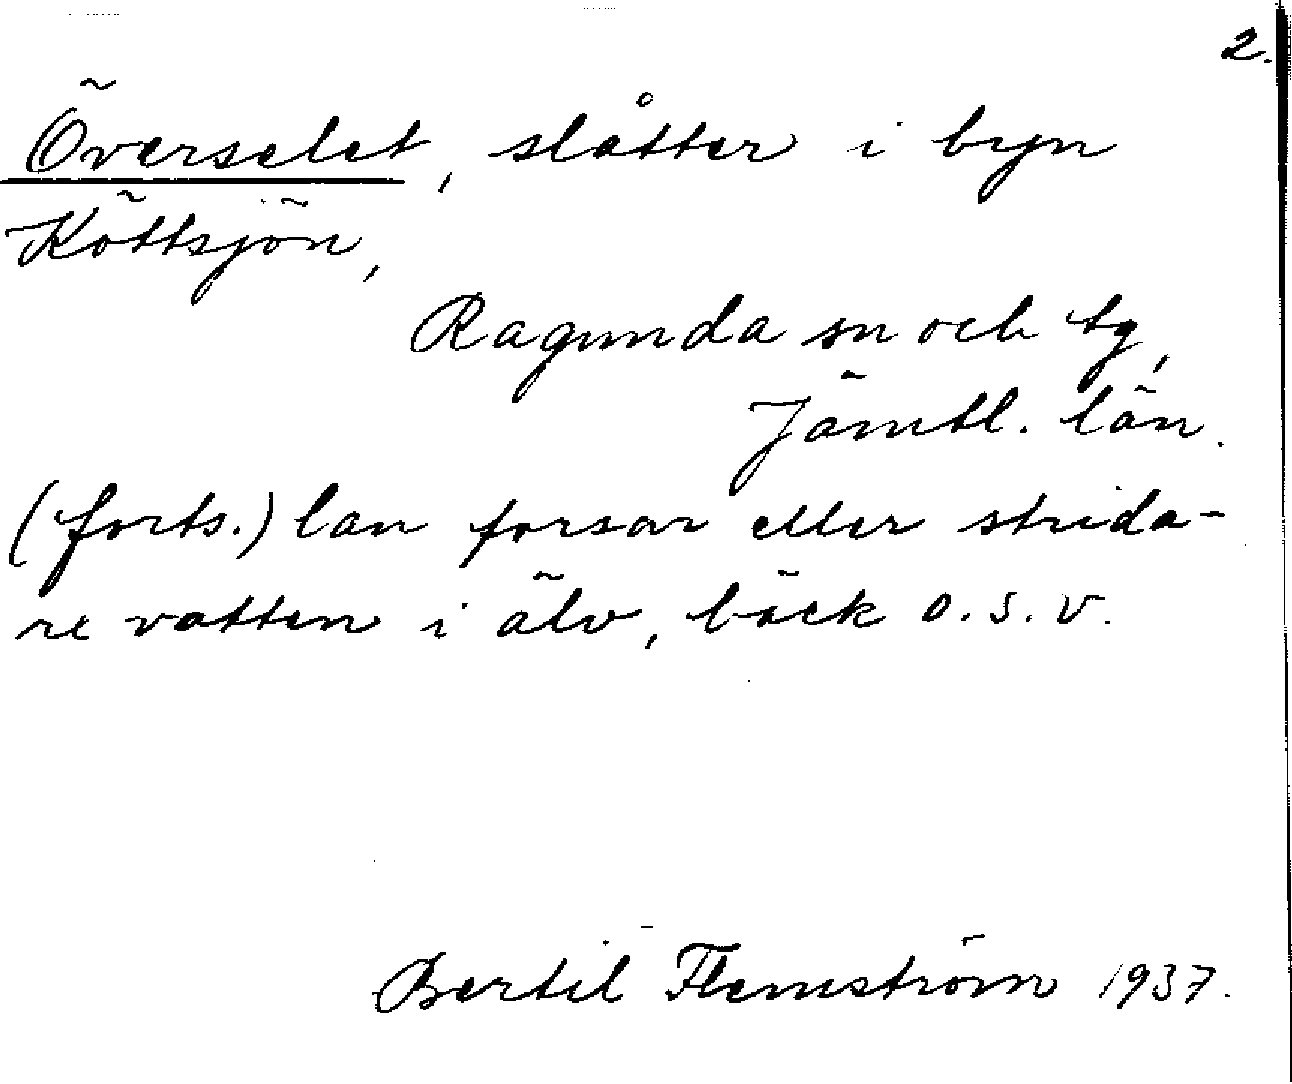 2.
Överselet, slåtter i byn
Köttsjön,
Ragunda sn och tg,
Jämtl. län.
(forts.) lan forsar eller strida-
re vatten i älv, bäck o.s.v.
Bertil Flemström 1937.